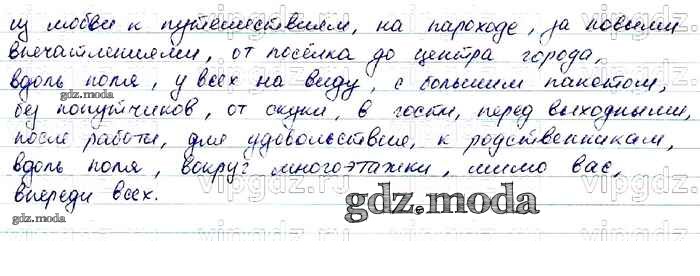 из любви к путешествиям, на пароходе, за новыми
впечатлениями, от посёлка до центра города,
вдоль поля, у всех на виду, с большим пакетом,
без попутчиков, от скуки, в гости, перед выходными,
после работы, для удовольствия, к родственникам,
вдоль поля, вокруг многоэтажки, мимо вас,
впереди всех.
gdz.moda
gdz.moda
gdz.moda
gdz.moda
vipgdz.ru